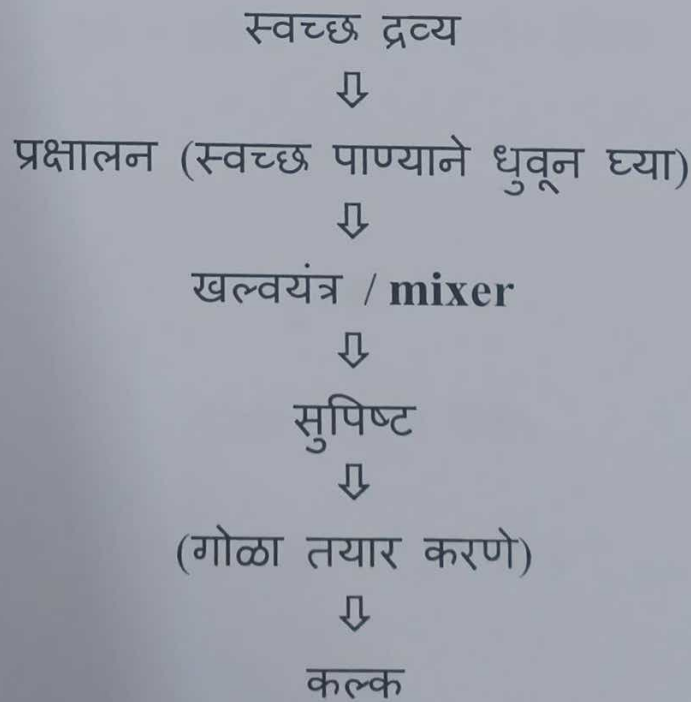 स्वच्छ द्रव्य
⇩
प्रक्षालन (स्वच्छ पाण्याने धुवून घ्या)
⇩
खल्वयंत्र / mixer
⇩
सुपिष्ट
⇩
(गोळा तयार करणे)
⇩
कल्क